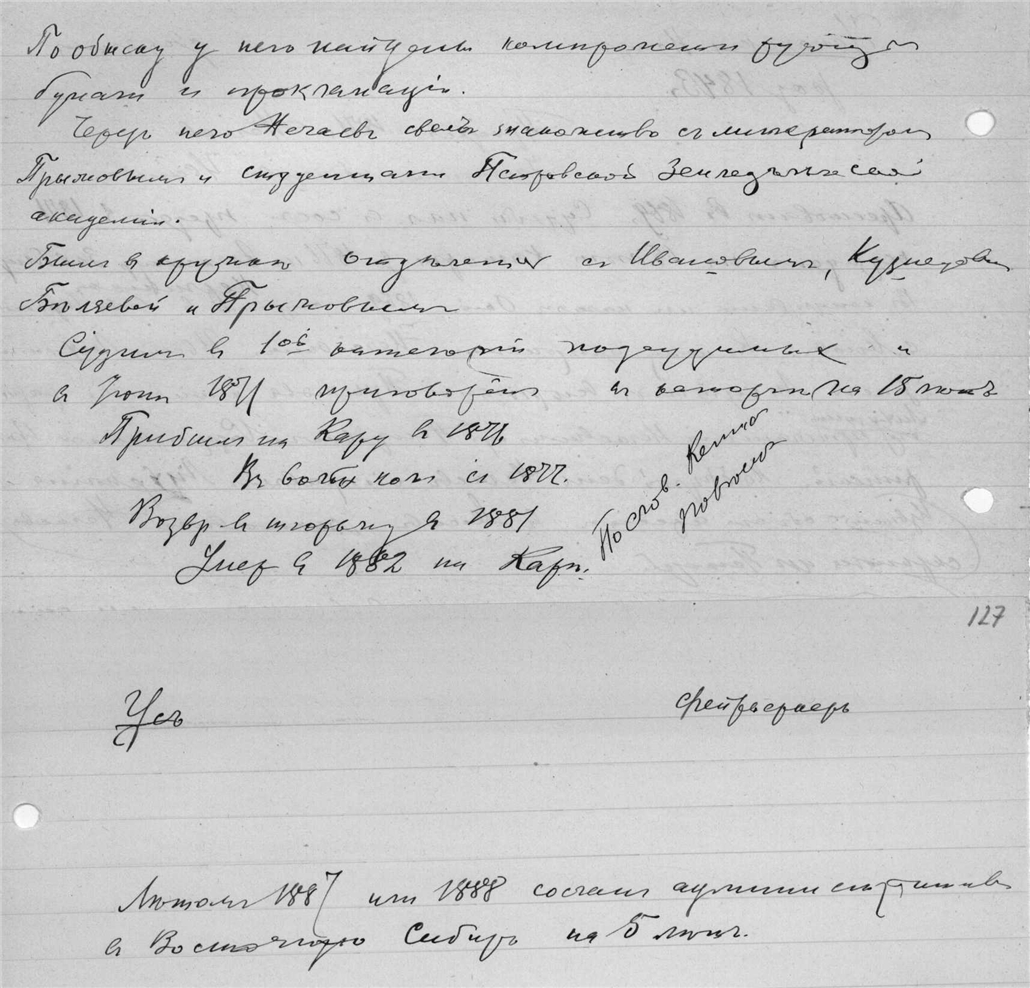 По обыску у него найдены компрометирующ
бумаги и прокламаціи.
Черезъ него Нечаевъ свелъ знакомство съ литератором
Прыжовымъ и студентами Петровской Земледѣльческой
академіи.
Былъ в кружкѣ отдѣленія съ Ивановымъ, Кузнецовым
Бѣляевой и Прыжовымъ
Судим в 1ой категоріи подсудимых и
в Іюлѣ 1871 приговорён к каторгѣ на 15 лѣтъ
Прибылъ на Кару в 1876
Въ вольн ком съ 1877.
Возвр в тюрьму в 1881
Умер в 1882 на Карѣ.
Послов.
127
Усъ
Фейрверкеръ
Лѣтомъ 1887 или 1888 сослан административ
в Восточную Сибирь на 5 лѣтъ.